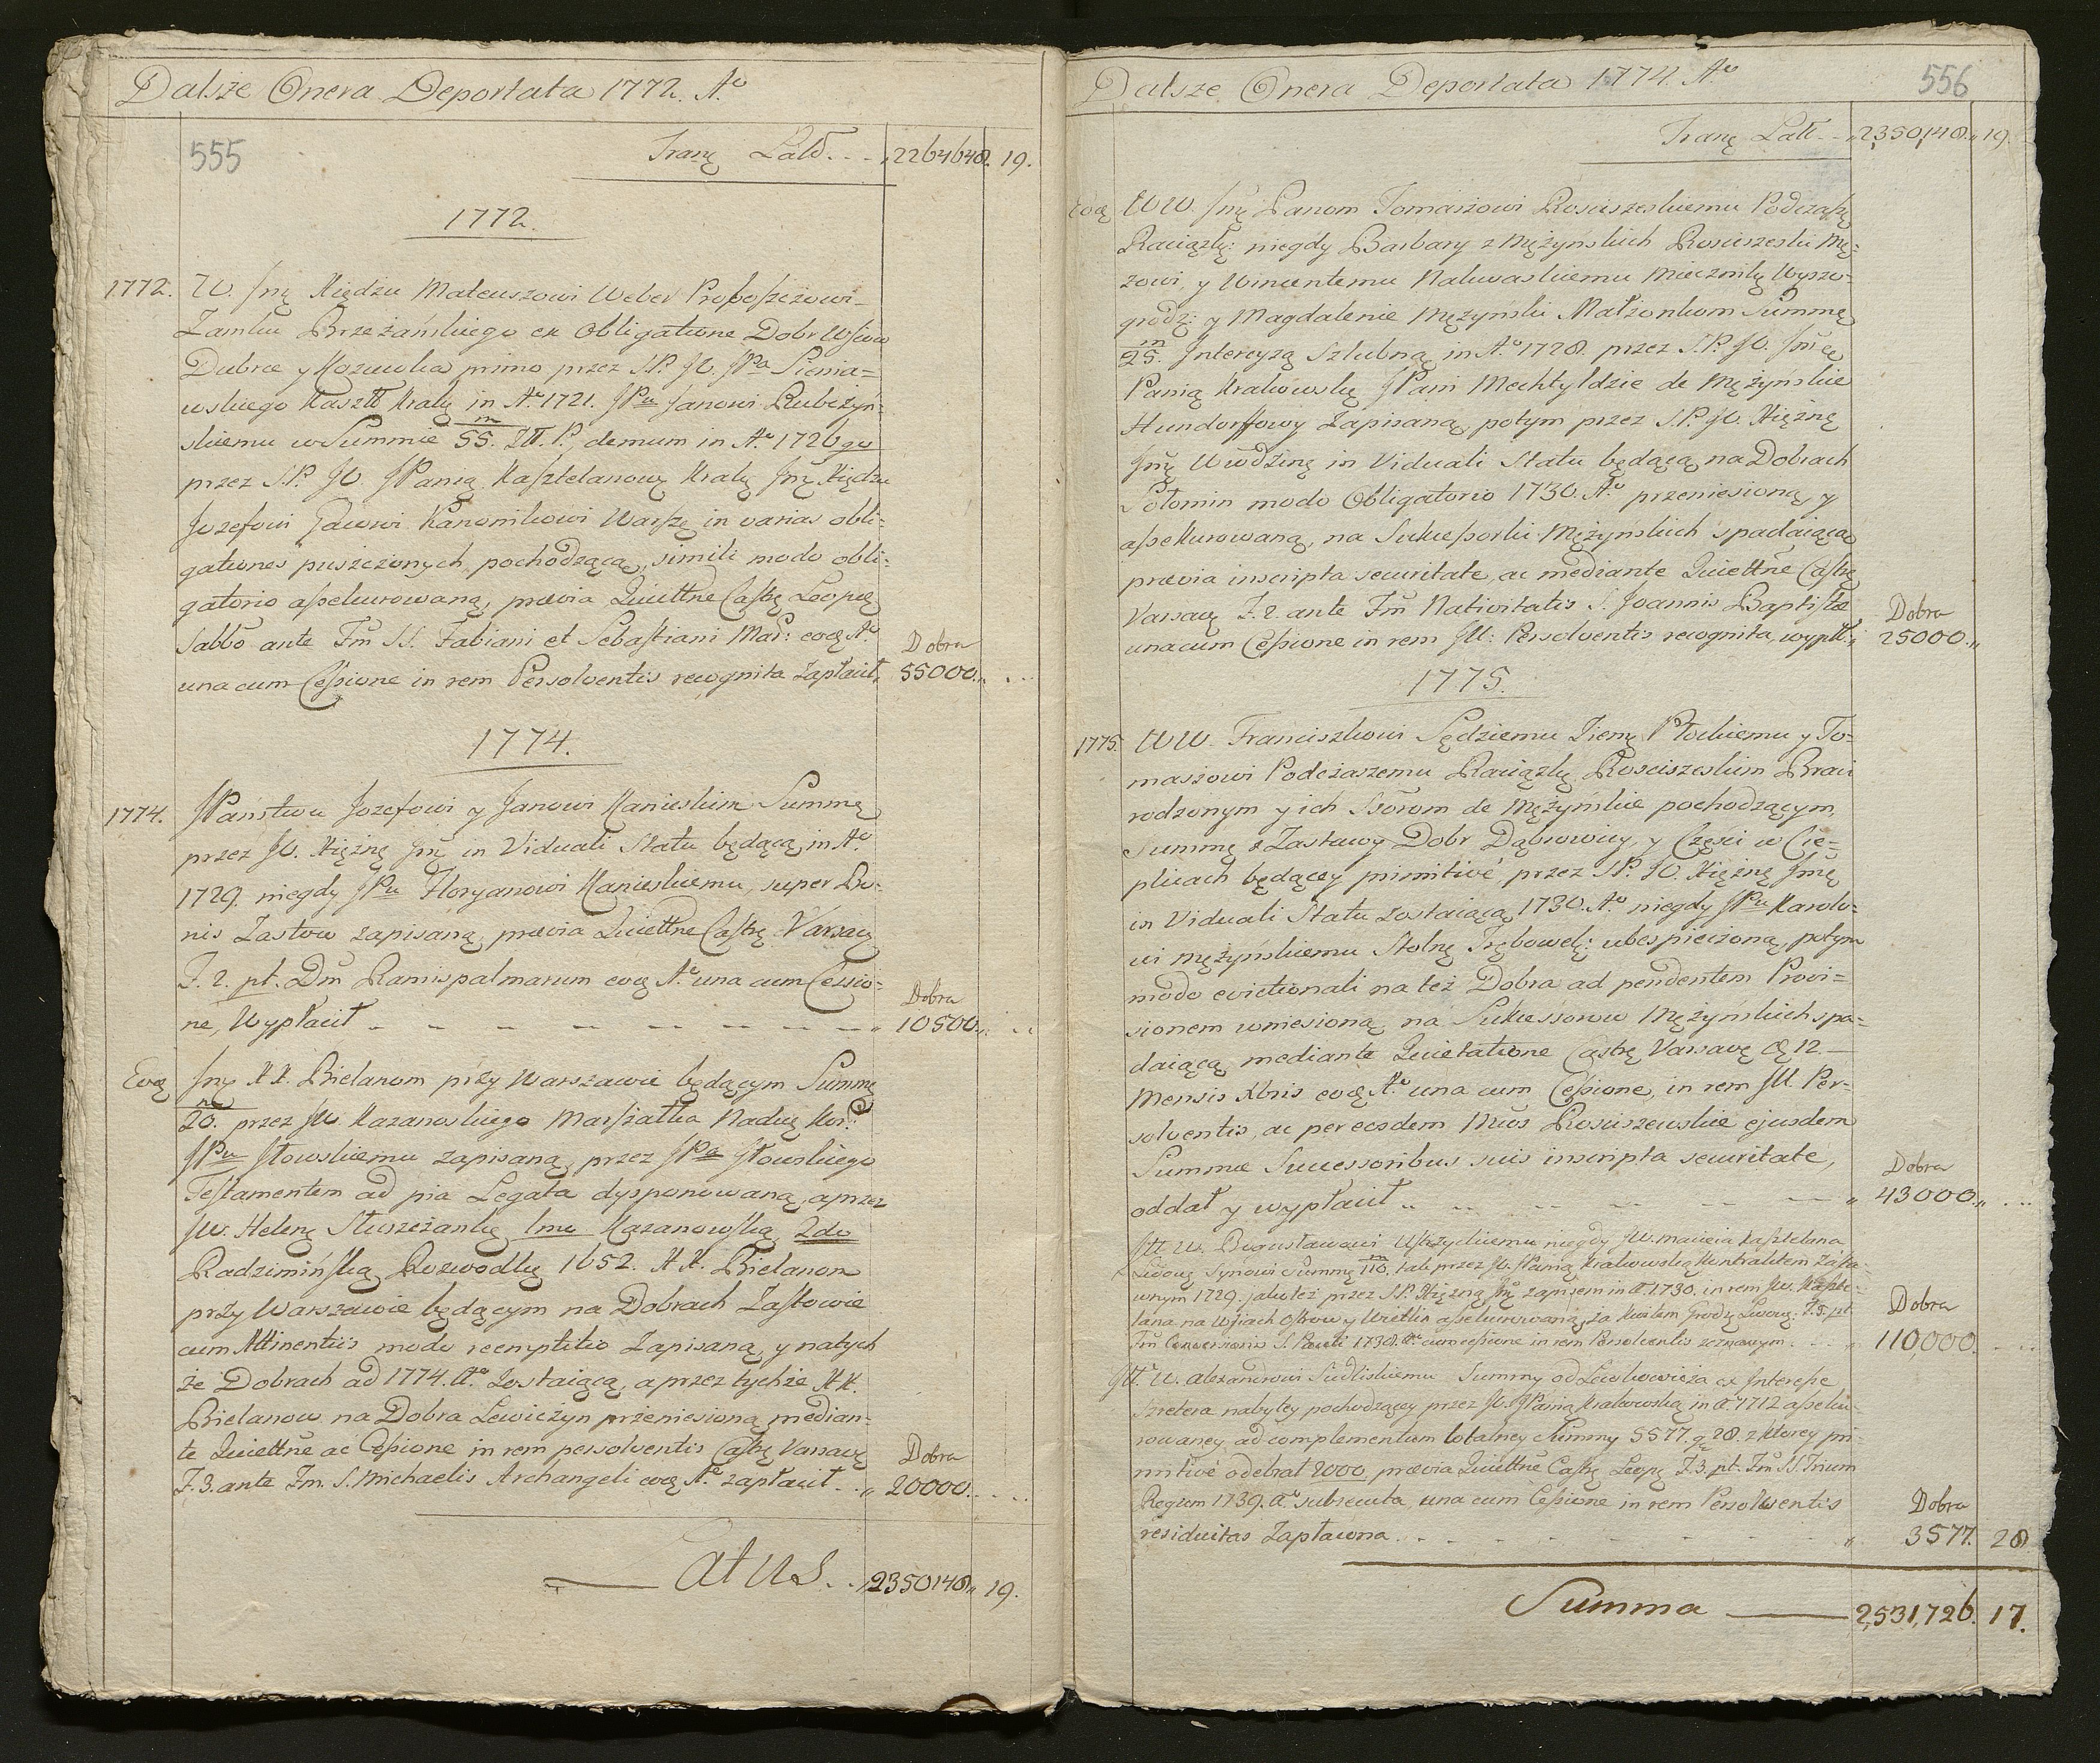 Dalsze Onera Deportata 1772. Aº
555
Tranę Latꝰ... „2264648. 19.
1772.
1772. W. Jmę Xiędzu Mateuszowi Weber Proboszczowi
Zamku Brzeżańskiego ex Obligatione Dobr Wsiow
Dubcze y Kozowka primo przez SP. JO. JPa Sienia=
wskiego Kasztt Krakꝫ in Aº 1721. JPu Janowi Rubczyń=
skiemu w Summie 55.m Ztt. P. demum in Aº 1726go
przez S.P. JO. JPanią Kasztelanowę Krakꝫ Jmę Xiędzu
Jozefowi Kanonikowi Warszꝫ in varias obli=
gationes puszczonych pochodzącą, simili modo obli=
gatorio assekurowaną, prævia Quiettne Castrꝫ Leopolꝫ
Sabbo ante Fm̃ SS. Fabiani et Sebastiani Mar: eoꝫ Aº
una cum Cessione in rem Persolventis recognita Zapłacił, Dobra 55000.„ ...
1774.
1774. JPaństwu Jozefowi y Janowi Kanieskim Summę
przez JO. Xiężnę Jmę in Viduali Statu będącą, in Aº
1729. niegdy JPu Floryanowi Kanieskiemu, super Bo=
nis Zastow zapisaną, prævia Quiettne Castrꝫ Varsavꝫ
F. 2. pt. Dm̃ Ramispalmarum eoꝫ Aº una cum Cessio=
ne, Wypłacił - - - - - - - - „ Dobra 10500.„ ..
Eoꝫ Jmꝫ XX. Bielanom przy Warszawie będącym Summę
20.m przez JW. Kazanowskiego Marszałka Nadwꝫ Kor:
JPu Słowskiemu zapisaną, przez JPa Słowskiego
Testamentem ad pia Legata dysponowaną, a przez
JW. Helenę Słuszczankę 1mo Kazanowską, 2do
Radzimińską Rozwodkę 1652. XX. Bielanom
przy Warszawie będącym na Dobrach Zastowie
cum Attinentiis modo reemptitio Zapisaną, y na tych
że Dobrach ad 1774. Aº Zostaiącą, a przez tychże XX.
Bielanow na Dobra Lewiczyn przeniesioną, median=
te Quiettne ac Cessione in rem persolventis Castrꝫ Varsavꝫ
F. 3. ante Fm. S. Michaelis Archangeli eoꝫ Aº zapłacił. „ Dobra 20000. ...
Latus.. „2350148„ 19.
Dalsze Onera Deportata 1774. Aº
556
Tranę Latꝰ.. „2,350,148.„ 19.
Eoꝫ WW. Jmę Panom Tomaszowi Rosciszewskiemu Podczaszꝫ
Raciązkꝫ: niegdy Barbary z Mężyńskich Rosciszewski Mę=
żowi, y Wincentemu Nakwaskiemu Miecznikꝫ Wyszo=
grodzꝫ: y Magdalenie Mężynski Małżonkom Summę
25.m Intercyzą Szlubną in Aº 1728. przez S.P. JO. Jmę
Panią Krakowskę JPani Mechtyldzie de Mężyńskie
Hundorffowy Zapisaną, potym przez S.P. JO. Xiężnę
Jmę Wwdzinę in Viduali Statu będącą, na Dobrach
Potomin modo Obligatorio 1730. Aº przeniesioną, y
assekurowaną, na Sukcessorki Mężyńskich spadaiącą,
prævia inscripta securitate, ac mediante Quiettne Castrꝫ
Varsavꝫ F. 2. ante Fm̃ Nativitatis S. Joannis Baptistæ
una cum Cessione in rem JO: Persolventis recognita, wypłł.„ Dobra 25000.„
1775.
1775. WW. Franciszkowi Sędziemu Ziemꝫ Płockiemu y To=
maszowi Podczaszemu Raciązkꝫ Rosciszewskim Braci
rodzonym y ich Ssorom de Mężyńskie pochodzącym,
Summę z Zastawy Dobr Dąbrowicy, y Częsci w Cie=
plicach będącey primitive przez SP. JO. Xiężnę Jmę
in Viduali Statu zostaiącą, 1730. Aº niegdy JPu Karolo=
wi Mężyńskiemu Stolnꝫ Trębowelꝫ: ubespieczoną, potym
modo evictionali na też Dobra ad pendentem Provi=
sionem wniesioną, na Sukcessorow Mężyńskich spa=
daiącą, mediante Quietatione Castrꝫ Varsavꝫ 12.
Mensis Xbris eoꝫ Aº una cum Cessione, in rem JO. Per=
solventis, ac per eosdem Rosciszewskie ejusdem
Summæ Successoribus suis inscripta securitate,
oddał y wypłacił „ - - - - - „ Dobra 43000.„ ...
Jtt. W. Bogusławowi Ustrzyckiemu niegdy JW. Macieia Kasztelana
Synowi Summę 110.m tak przez JO. JPanią Krakowską Kontraktem Zasta=
wnym 1729. jako też przez S.P. Xiężną Jmę zapisem in Aº 1730. in rem JW. Kaszte=
lana na Wsiach Ostrow y Wietlin assekurowaną, za Kwitem Grodzꝫ Lwowꝫ: F. 5. pt.
Fm̃ Conversionis S. Pauli 1738. Aº cum cessione in rem Persolventis zeznanym. . . „ Dobra 110,000. ...
Jtt. W. Alexandrowi Siedliskiemu Summy od Lewkowicza ex Interesse
Szretera nabytey pochodzącey przez JO. JPanią Krakowską in Aº 1712 asseku=
rowaney, ad complementum totalney Summy 5577. g. 28. z ktorey pri=
mitive odebrał 2000. prævia Quiettne Castrꝫ Leopꝫ F. 3. pt. Fm̃ SS. Trium
Regum 1739. Aº subsecuta, una cum Cessione in rem Persolventis
residuitas Zapłacona . - - - - - „ Dobra 3577. 28
Summa — 2,531,726. 17.